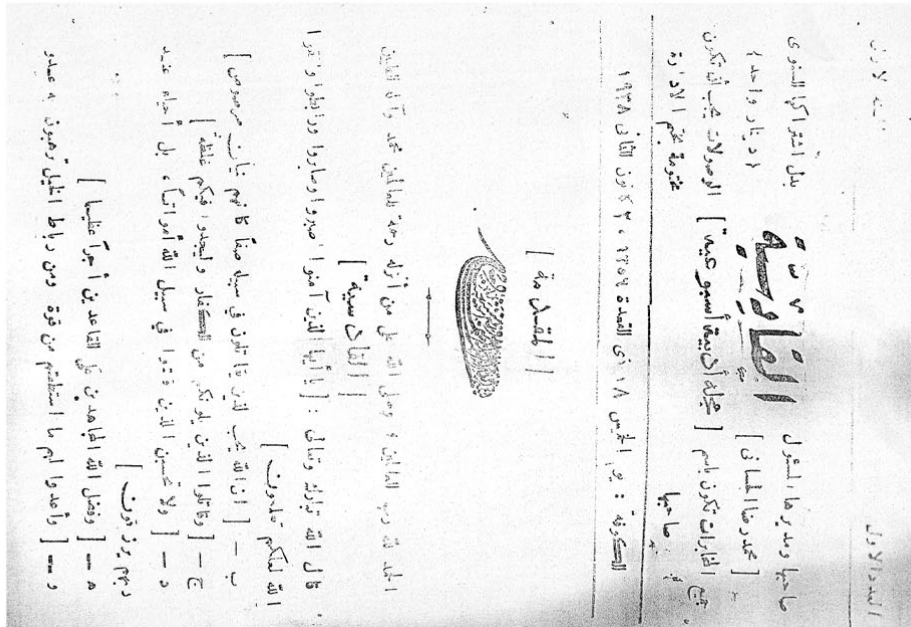 العدد الاول السنة الاولى
صاحبها ومديرها المسئول بدل اشتراكها السنوى
[ محمد رضا الحسانى ] القادسية ( دينار واحد )
جميع المخابرات تكون باسم [ مجلة أدبية أسبوعية ] الوصولات يجب أن تكون
صاحبها مختومة بختم الادارة
الكوفة : يوم الخميس ١٨ ذى القعدة ١٣٥٦ ، ٢٠ كانون الثانى ١٩٣٨
[ المقدمة ]
بسم الله الرحمن الرحيم
الحمد لله رب العالمين ، وصلى الله على من أنزله رحمة للعالمين محمد وآله
[ القادسية ]
قال الله تبارك وتعالى : [ يا أيها الذين آمنوا اصبروا وصابروا ورابطوا واتقوا
الله لعلكم تفلحون ]
ب — [ ان الله يحب الذين يقاتلون في سبيله صفاً كانهم بنيان مرصوص ]
ج — [ وقاتلوا الذين يلونكم من الكفار وليجدوا فيكم غلظة ]
د — [ ولا تحسبن الذين قتلوا في سبيل الله أمواتاً ، بل أحياء عند
ربهم يرزقون ]
ه — [ وفضل الله المجاهدين على القاعدين أجراً عظيما ]
و — [ وأعدوا لهم ما استطعتم من قوة ومن رباط الخيل ترهبون به عدو